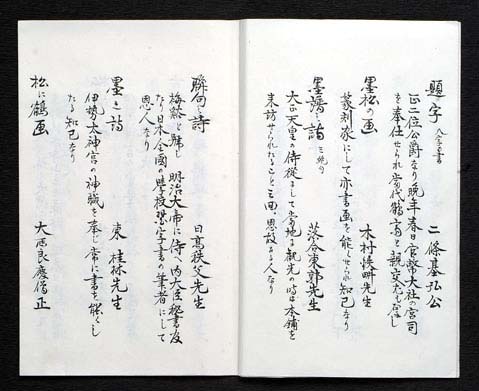 題字 二條基弘公
正二位公爵なり晩年春日官幣大社の宮司
を奉仕せられ當代
墨松の画 木村 先生
篆刻家にして亦書画を能くせられ知己なり
墨譜之詩 落合東郭先生
大正天皇の侍従まして當地 観光の時本舗を
来訪せられたること三回、恩 る人なり
聯句ノ詩 日髙秩父先生
梅 と号し 明治大帝に侍へ内大臣秘書官
なり日本全國の學校 習字書の筆者にして
恩人なり
墨之詩 東桂林先生
伊勢太神宮の神職を奉じ常に書を能くし
たる知己なり
松に鶴画 大西良慶僧正